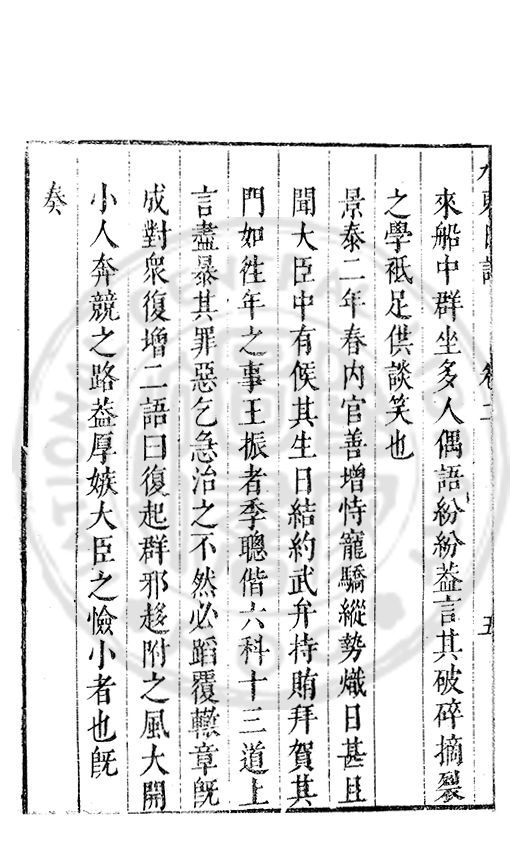 水東日記　卷二　五
來船中群坐多人偶語紛紛葢言其破碎摘裂
之學祇足供談笑也
景泰二年春內官善增恃寵驕縱勢熾日甚且
聞大臣中有候其生日結約武弁持賄拜賀其
門如徃年之事王振者季聰偕六科十三道上
言盡暴其罪惡乞急治之不然必蹈覆轍章既
成對衆復增二語曰復起群邪趍附之風大開
小人奔競之路葢厚嫉大臣之憸小者也既
奏